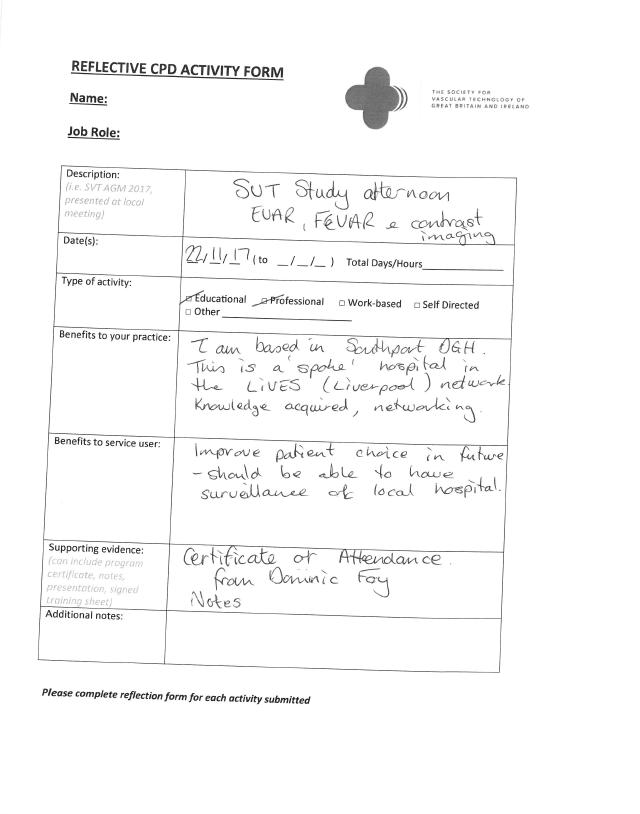 REFLECTIVE CPD ACTIVITY FORM
THE SOCIETY FOR
VASCULAR TECHNOLOGY OF
GREAT BRITAIN AND IRELAND
Name:
Job Role:
Description:
(i.e. SVT AGM 2017,
presented at local
meeting)
SVT Study afternoon
EVAR, FEVAR e contrast
imaging
Date(s):
22/11/17 (to _/_/_) Total Days/Hours
Type of activity:
□ Educational □ Professional □ Work-based □ Self Directed
□ Other
Benefits to your practice:
I am based in Southport DGH.
This is a 'spoke' hospital in
the LiVES (Liverpool) network.
Knowledge acquired, networking.
Benefits to service user:
Improve patient choice in future
- should be able to have
surveillance at local hospital.
Supporting evidence:
(can include program
certificate, notes,
presentation, signed
training sheet)
Certificate of Attendance.
from Dominic Foy
Notes
Additional notes:
Please complete reflection form for each activity submitted